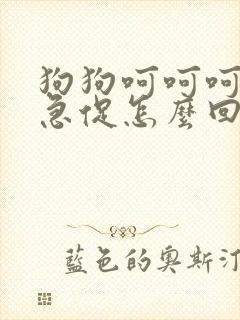 狗狗呵呵呵
急促怎麼回
藍色的奧斯汀